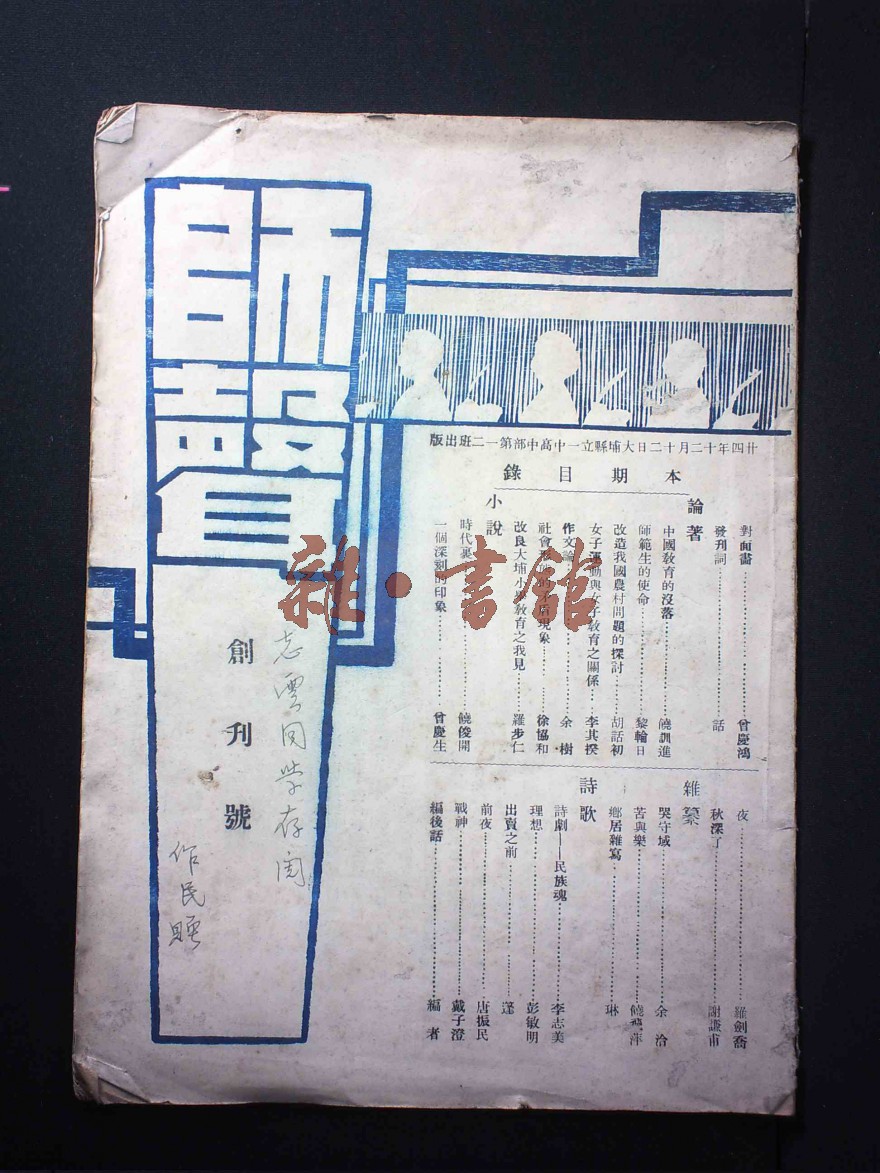 師聲
創刊號
志雲同學存閱
作民贈
廿四年十二月十二日大埔縣立一中高中部第一二班出版
本期目錄
對面畫……曾慶鴻
發刊詞……話
論著
中國教育的沒落……饒訓進
師範生的使命……黎輪日
改造我國農村問題的探討……胡話初
女子運動與女子教育之關係……李其揆
作文論……余樹
社會形的現象……徐協和
改良大埔小學教育之我見……羅步仁
小說
時代裏……饒俊開
一個深刻的印象……曾慶生
夜……羅劍喬
秋深了……謝謙甫
雜纂
哭守域……余洽
苦與樂……饒萍
鄉居雜寫……琳
詩歌
詩劇——民族魂……李志美
理想……彭敏明
出賣之前……蓬
前夜……唐振民
戰神……戴子澄
編後話……編者
雜·書館